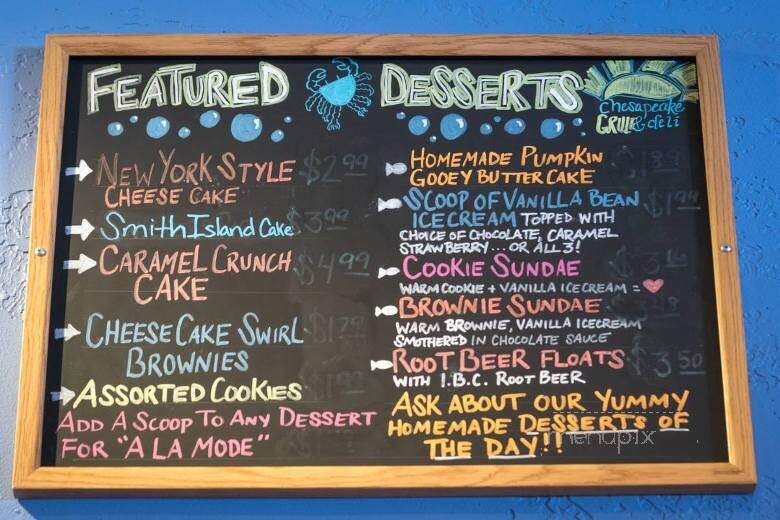 FEATURED DESSERTS
Chesapeake
GRILLE & deli
NEW YORK STYLE $2.99
CHEESE CAKE
Smith Island Cake $3.99
CARAMEL CRUNCH $4.99
CAKE
CHEESE CAKE SWIRL
BROWNIES
ASSORTED COOKIES
ADD A SCOOP TO ANY DESSERT
FOR "A LA MODE"
HOMEMADE PUMPKIN
GOOEY BUTTER CAKE
SCOOP OF VANILLA BEAN $1.99
ICE CREAM TOPPED WITH
CHOICE OF CHOCOLATE, CARAMEL
STRAWBERRY... OR ALL 3!
COOKIE SUNDAE
WARM COOKIE + VANILLA ICECREAM =
BROWNIE SUNDAE
WARM BROWNIE, VANILLA ICECREAM
SMOTHERED IN CHOCOLATE SAUCE
ROOT BEER FLOATS $3.50
WITH I.B.C. ROOT BEER
ASK ABOUT OUR YUMMY
HOMEMADE DESSERTS OF
THE DAY!!
menupix